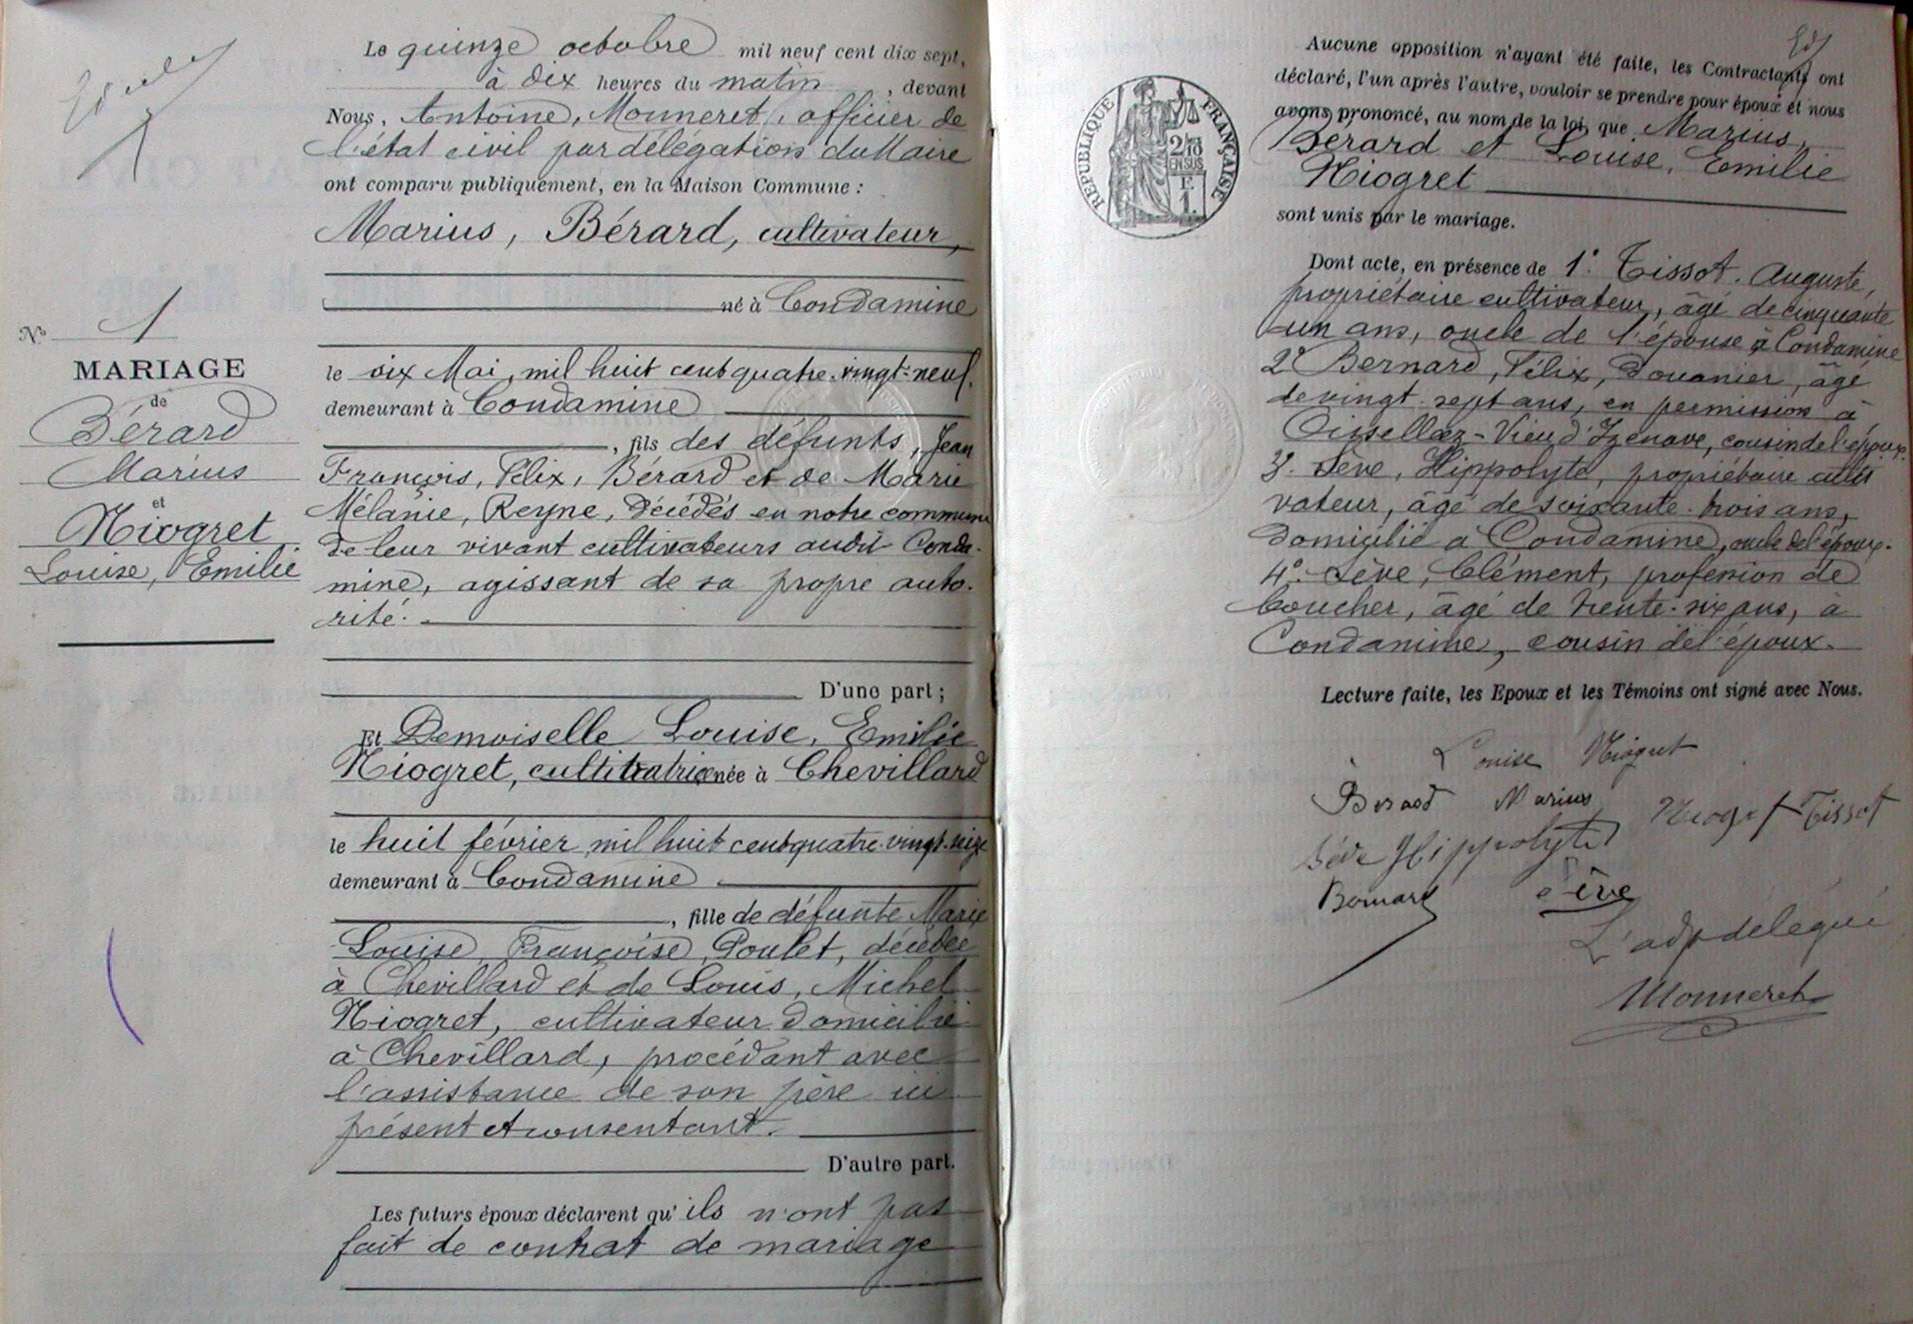 Le quinze octobre mil neuf cent dix sept,
à dix heures du matin, devant
Nous, Antoine, Monneret, officier de
l'état civil par délégation du Maire
ont comparu publiquement, en la Maison Commune :
Marius, Bérard, cultivateur,
né à Condamine
le dix Mai, mil huit cent quatre-vingt-neuf.
demeurant à Condamine
, fils des défunts, Jean
François, Félix, Bérard et de Marie
Mélanie, Reyne, décédés en notre commune
de leur vivant cultivateurs audit Conda-
mine, agissant de sa propre auto-
rité.
D'une part ;
Et Demoiselle Louise, Emilie
Niogret, cultivatrice née à Chevillard
le huit février mil huit cent quatre-vingt-seize
demeurant à Condamine
, fille de défunte Marie
Louise, Françoise, Poulet, décédée
à Chevillard et de Louis, Michel
Niogret, cultivateur domicilié
à Chevillard, procédant avec
l'assistance de son père ici
présent et consentant.
D'autre part.
Les futurs époux déclarent qu'ils n'ont pas
fait de contrat de mariage
No 1
MARIAGE
de
Bérard
Marius
et
Niogret
Louise, Emilie
Aucune opposition n'ayant été faite, les Contractants ont
déclaré, l'un après l'autre, vouloir se prendre pour époux et nous
avons prononcé, au nom de la loi, que Marius,
Berard et Louise, Emilie
Niogret
sont unis par le mariage.
RÉPUBLIQUE FRANÇAISE
2/10
EN SUS
F.
1.
Dont acte, en présence de 1° Tissot. Auguste,
propriétaire cultivateur, âgé de cinquante
un ans, oncle de l'épouse à Condamine
2° Bernard, Félix, douanier, âgé
de vingt-sept ans, en permission à
Vieu d'Izenave, cousin de l'époux.
3° Sève, Hippolyte, propriétaire culti
vateur, âgé de soixante-trois ans,
domicilié à Condamine, oncle de l'époux.
4° Sève, Clément, profession de
boucher, âgé de trente-six ans, à
Condamine, cousin de l'époux.
Lecture faite, les Epoux et les Témoins ont signé avec Nous.
Louise Niogret
Berard Marius
Niogret Tissot
Sève Hippolyte
Bernard Sève
L'adj délégué
Monneret